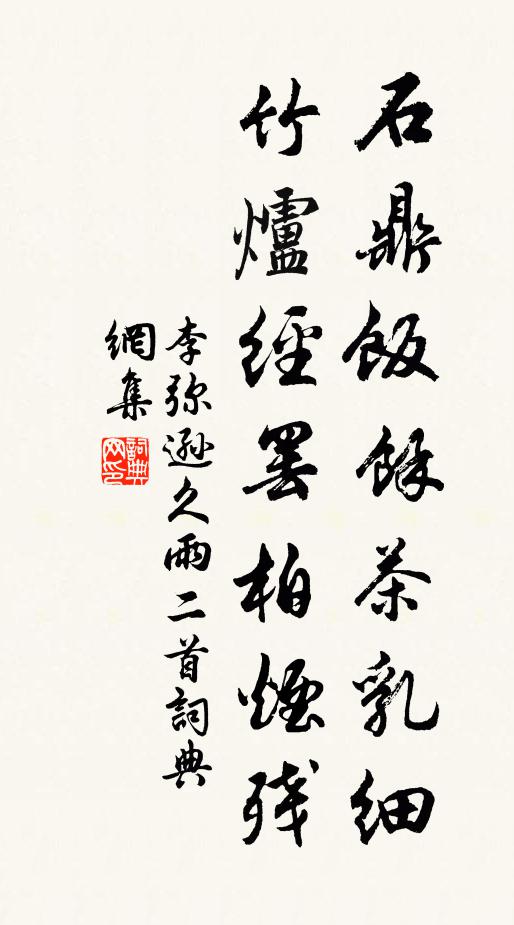 石鼎飯餘茶乳細
竹爐經罢柏煙残
李弥遜久雨二首詞典
網集
詞典
网印